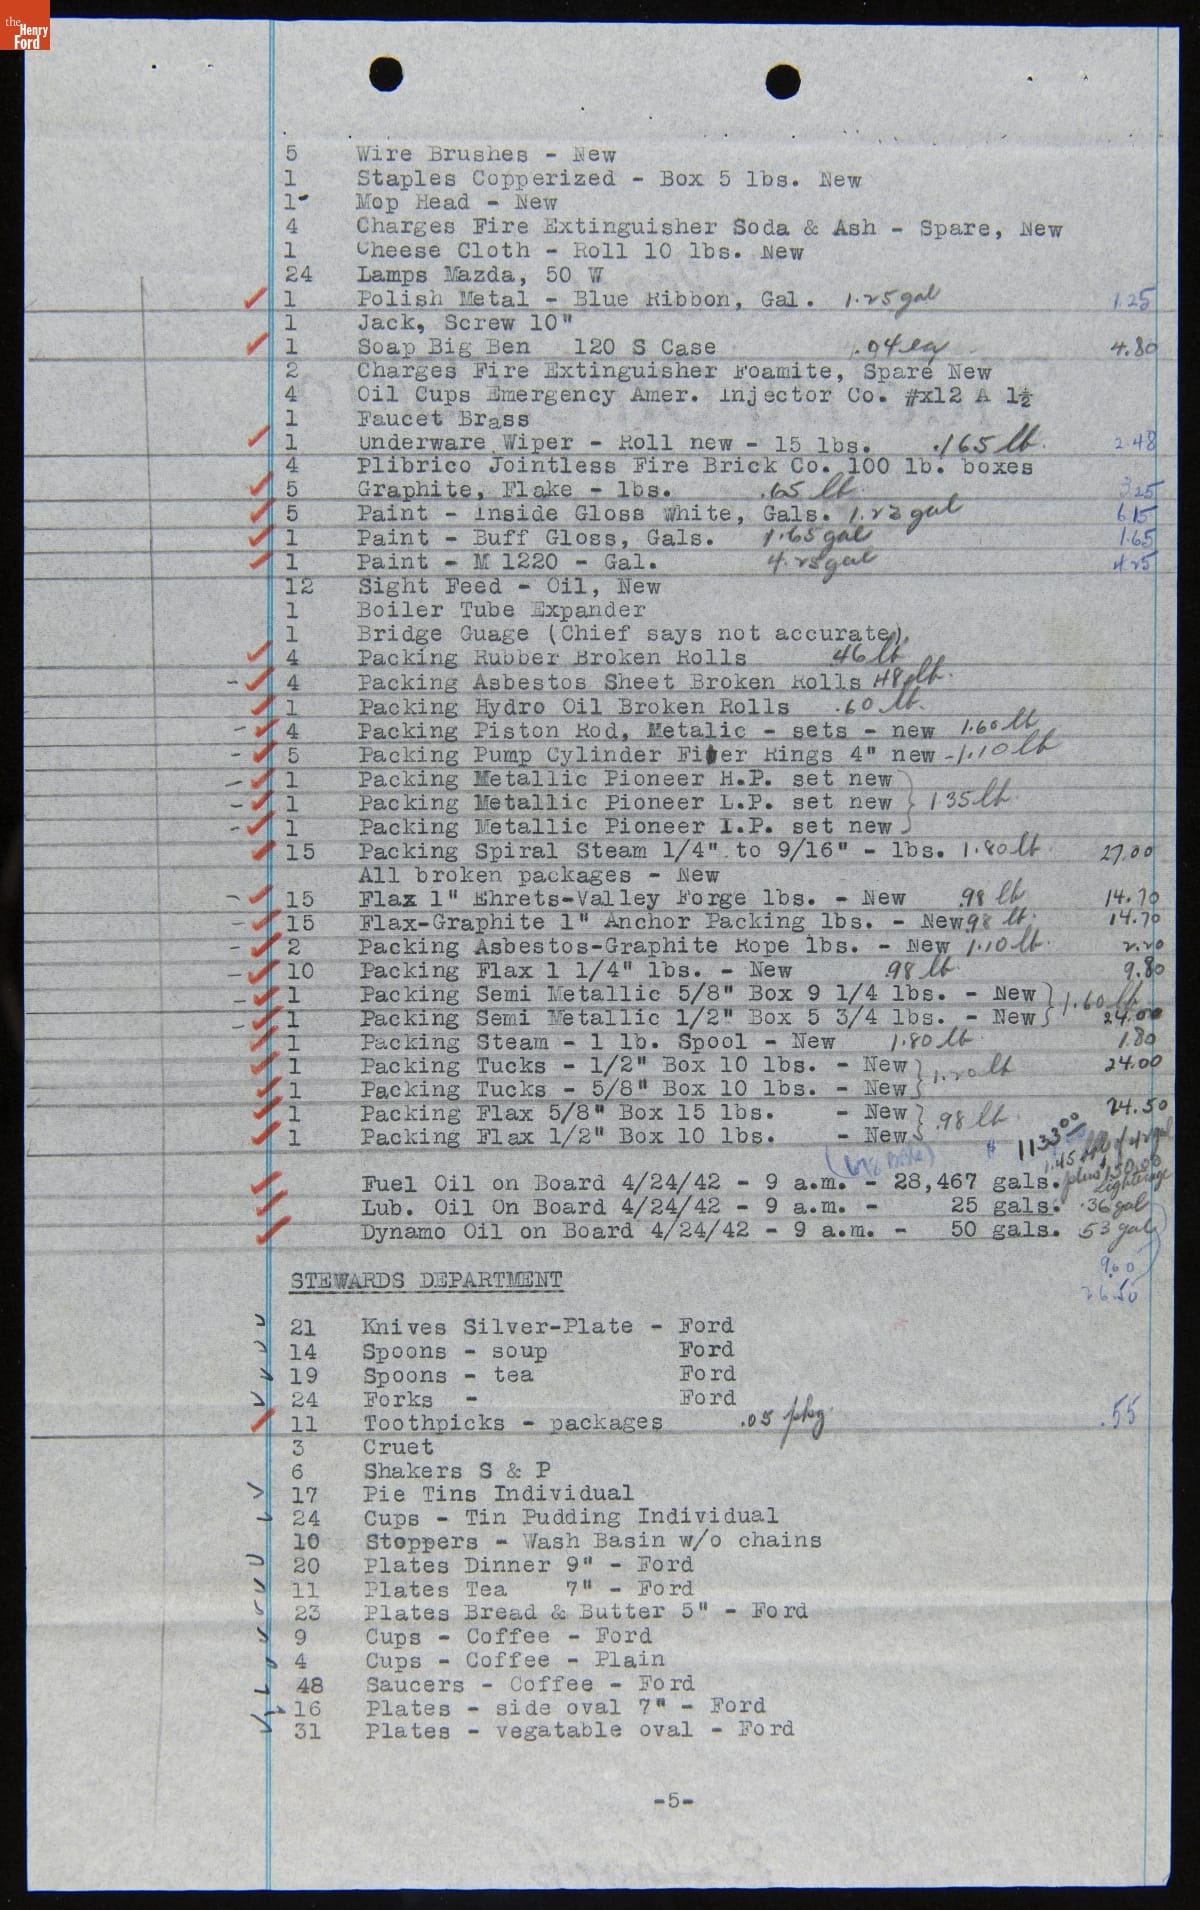 the Henry Ford
5 Wire Brushes - New
1 Staples Copperized - Box 5 lbs. New
1 Mop Head - New
4 Charges Fire Extinguisher Soda & Ash - Spare, New
1 Cheese Cloth - Roll 10 lbs. New
24 Lamps Mazda, 50 W
1 Polish Metal - Blue Ribbon, Gal. 1.25 gal 1.25
1 Jack, Screw 10"
1 Soap Big Ben 120 S Case .04 ea 4.80
2 Charges Fire Extinguisher Foamite, Spare New
4 Oil Cups Emergency Amer. Injector Co. #x12 A 1½
1 Faucet Brass
1 Underware Wiper - Roll new - 15 lbs. .165 lb. 2.48
4 Plibrico Jointless Fire Brick Co. 100 lb. boxes
5 Graphite, Flake - lbs. .65 lb. 3.25
5 Paint - Inside Gloss White, Gals. 1.23 gal 6.15
1 Paint - Buff Gloss, Gals. 1.65 gal 1.65
1 Paint - M 1220 - Gal. 4.25 gal 4.25
12 Sight Feed - Oil, New
1 Boiler Tube Expander
1 Bridge Guage (Chief says not accurate).
4 Packing Rubber Broken Rolls .46 lb
4 Packing Asbestos Sheet Broken Rolls .48 lb.
1 Packing Hydro Oil Broken Rolls .60 lb.
4 Packing Piston Rod, Metalic - sets - new 1.60 lb
5 Packing Pump Cylinder Fiber Rings 4" new - 1.10 lb
1 Packing Metallic Pioneer H.P. set new
1 Packing Metallic Pioneer L.P. set new 1.35 lb.
1 Packing Metallic Pioneer I.P. set new
15 Packing Spiral Steam 1/4" to 9/16" - lbs. 1.80 lb. 27.00
All broken packages - New
15 Flax 1" Ehrets-Valley Forge lbs. - New .98 lb 14.70
15 Flax-Graphite 1" Anchor Packing lbs. - New .98 lb. 14.70
2 Packing Asbestos-Graphite Rope lbs. - New 1.10 lb. 2.20
10 Packing Flax 1 1/4" lbs. - New .98 lb. 9.80
1 Packing Semi Metallic 5/8" Box 9 1/4 lbs. - New 1.60 lb
1 Packing Semi Metallic 1/2" Box 5 3/4 lbs. - New 24.00
1 Packing Steam - 1 lb. Spool - New 1.80 lb. 1.80
1 Packing Tucks - 1/2" Box 10 lbs. - New 1.20 lb 24.00
1 Packing Tucks - 5/8" Box 10 lbs. - New
1 Packing Flax 5/8" Box 15 lbs. - New .98 lb. 24.50
1 Packing Flax 1/2" Box 10 lbs. - New $ 1133.00
(678 Bbls)
1.45 Bbl of 42 gal
plus $150.00 Lighterage
Fuel Oil on Board 4/24/42 - 9 a.m. - 28,467 gals.
Lub. Oil On Board 4/24/42 - 9 a.m. - 25 gals. .36 gal
Dynamo Oil on Board 4/24/42 - 9 a.m. - 50 gals. 53 gal
9.00
26.50
STEWARDS DEPARTMENT
21 Knives Silver-Plate - Ford
14 Spoons - soup Ford
19 Spoons - tea Ford
24 Forks - Ford
11 Toothpicks - packages .05 pkg. .55
3 Cruet
6 Shakers S & P
17 Pie Tins Individual
24 Cups - Tin Pudding Individual
10 Stoppers - Wash Basin w/o chains
20 Plates Dinner 9" - Ford
11 Plates Tea 7" - Ford
23 Plates Bread & Butter 5" - Ford
9 Cups - Coffee - Ford
4 Cups - Coffee - Plain
48 Saucers - Coffee - Ford
16 Plates - side oval 7" - Ford
31 Plates - vegatable oval - Ford
-5-